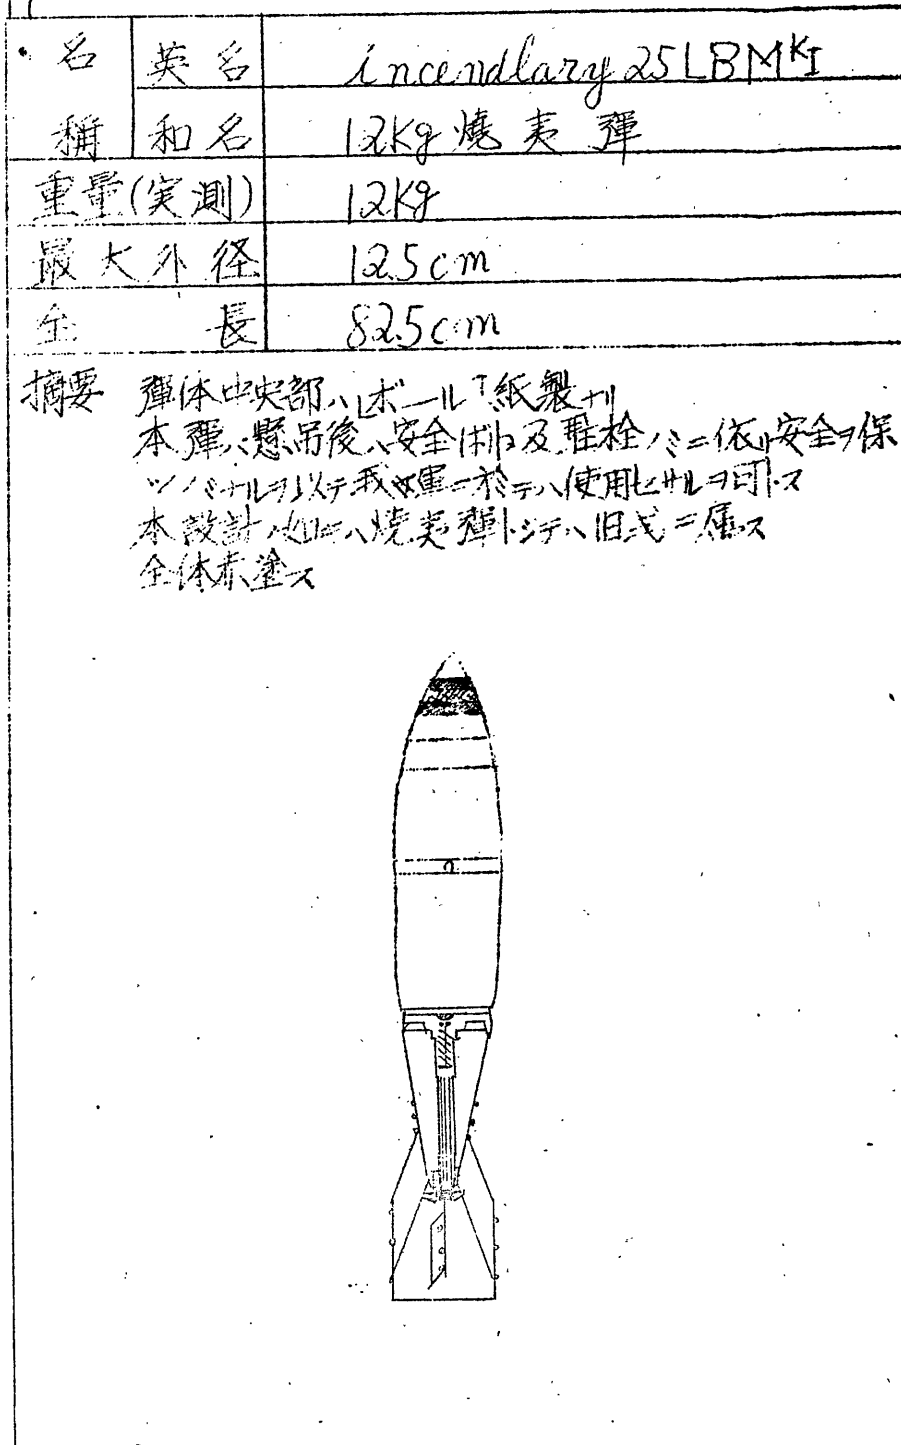 名稱 英名 incendlary 25LBMKI
和名 12Kg 燒夷彈
重量(実測) 12Kg
最大外径 12.5cm
全長 82.5cm
摘要 彈体中央部ハ「ボール」紙製ナリ
本彈ハ懸吊後ハ安全 及 栓ノミニ依リ安全ヲ保
ツノミナルヲ以テ我軍ニ於テハ使用セサルヲ可トス
本設計ノ如キハ燒夷彈トシテハ旧式ニ属ス
全体赤塗ス